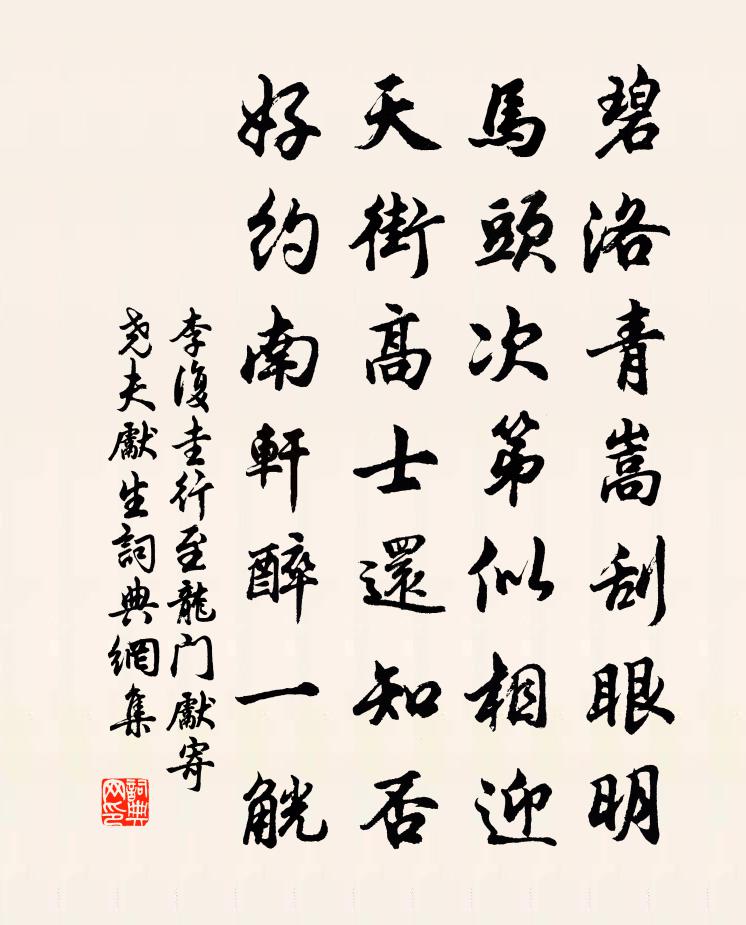 碧洛青嵩刮眼明
馬頭次第似相迎
天街高士還知否
好約南軒醉一觥
李復圭行至龍门獻寄
尧夫獻生詞典網集
詞典网印